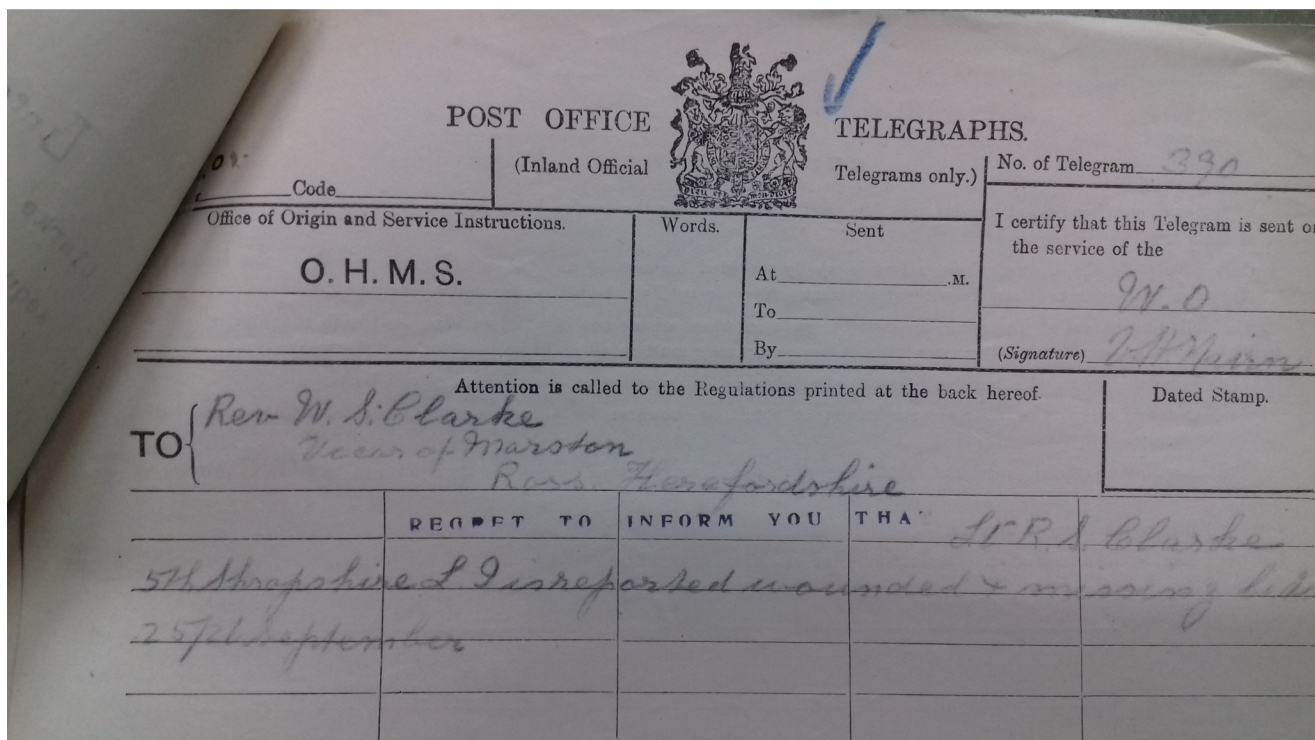 POST OFFICE TELEGRAPHS.
(Inland Official Telegrams only.)
No. of Telegram 390
Code
Office of Origin and Service Instructions.
Words.
Sent
I certify that this Telegram is sent
the service of the
O. H. M. S.
At .M.
W.O
To
By
(Signature)
Attention is called to the Regulations printed at the back hereof.
Dated Stamp.
TO
Rev W. S. Clarke
Vicar of Marston
Ross. Herefordshire
REGRET TO INFORM YOU THAT Lt R. S. Clarke
5th Shropshire L I is reported wounded & missing
25/26 September